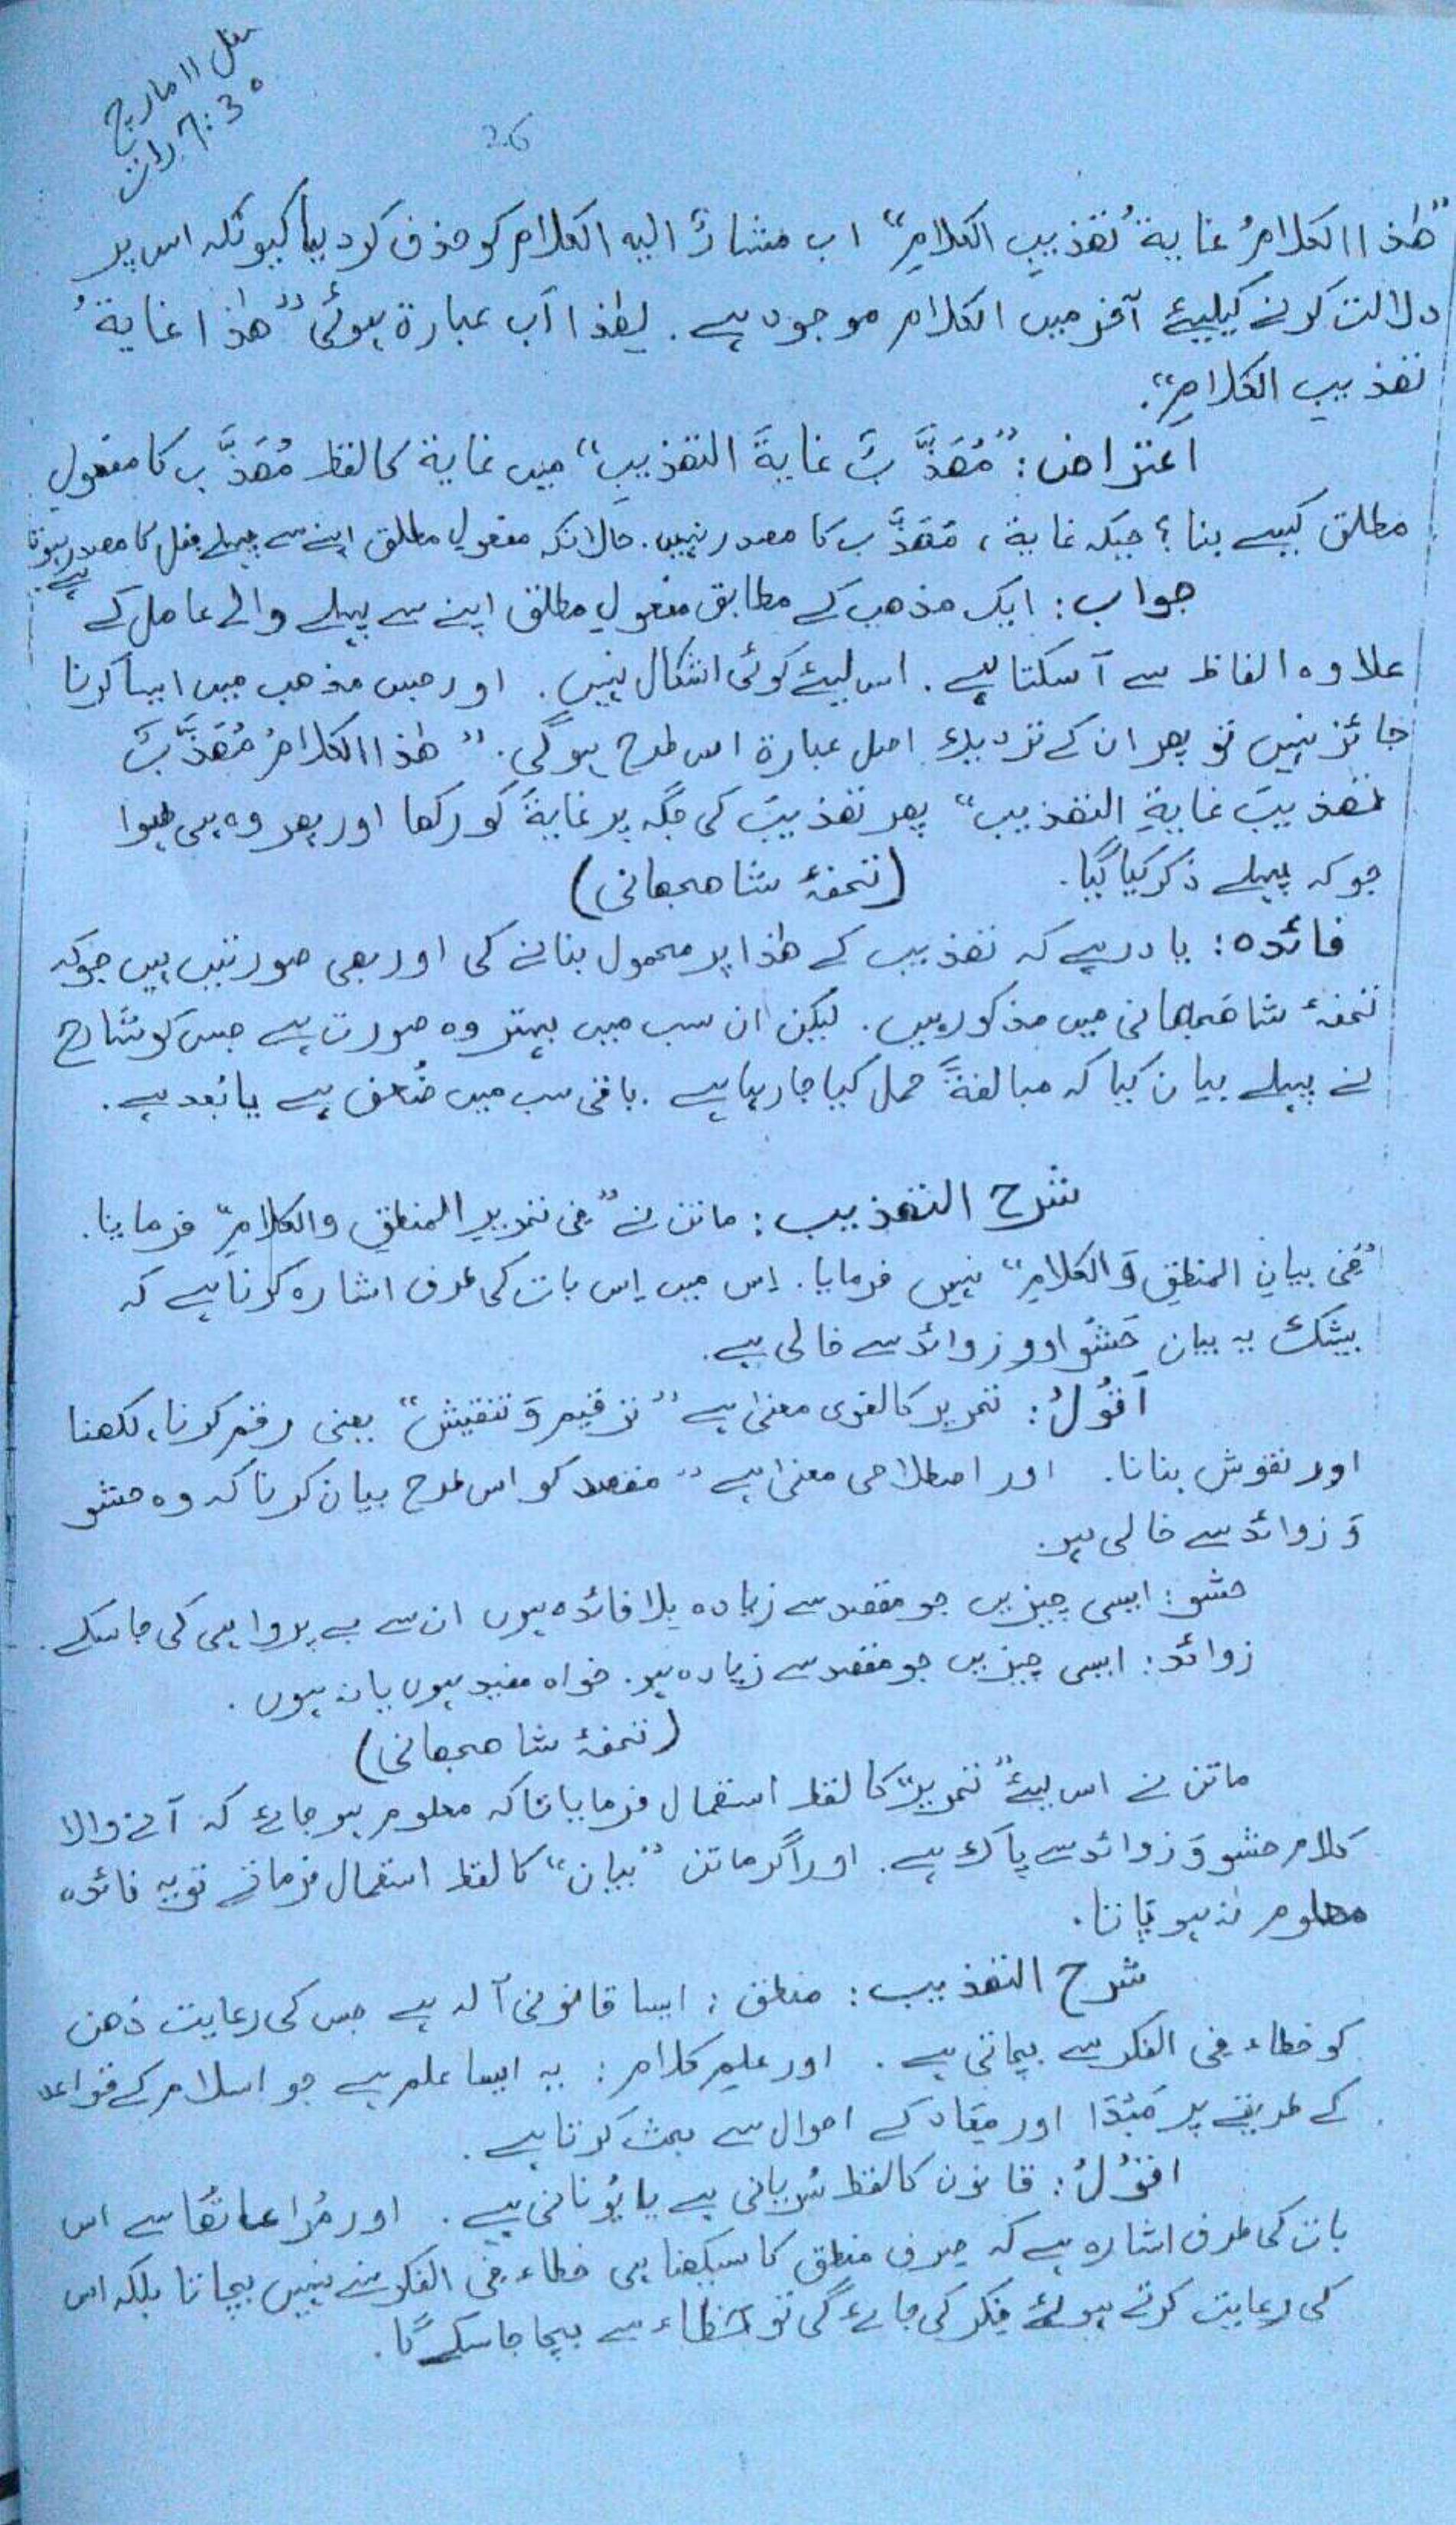 11 مارچ
7:30 رات
26
”ھٰذا الکلامُ غایۃُ تھذیبِ الکلامِ“ اب مشارٌ الیہ الکلام کو حذف کر دیا کیونکہ اس پر
دلالت کرنے کیلیئے آخر میں الکلام موجود ہے۔ لھٰذا اَب عبارۃ ہوئی ”ھٰذا غایۃُ
تھذیبِ الکلامِ“۔
اعتراض: ”مُھَذَّبٌ غایۃَ التھذیبِ“ میں غایۃ کا لفظ مُھَذَّب کا مفعولِ
مطلق کیسے بنا؟ جبکہ غایۃ، مُھَذَّب کا مصدر نہیں۔ حالانکہ مفعولِ مطلق اپنے سے پہلے فعل کا مصدر ہوتا
ہے۔
جواب: ایک مذھب کے مطابق مفعولِ مطلق اپنے سے پہلے والے عامل کے
علاوہ الفاظ سے آ سکتا ہے۔ اس لیئے کوئی اشکال نہیں۔ اور جس مذھب میں ایسا کرنا
جائز نہیں تو پھر ان کے نزدیک اصل عبارۃ اس طرح ہو گی۔ ”ھٰذا الکلامُ مُھَذَّبٌ
تھذیبَ غایۃِ التھذیب“ پھر تھذیبَ کی جگہ پر غایۃَ کو رکھا اور پھر وہ ہی ھوا
جو کہ پہلے ذکر کیا گیا۔ (تحفۂ شاھجھانی)
فائدہ: یاد رہے کہ تھذیب کے ھٰذا پر محمول بنانے کی اور بھی صورتیں ہیں جو کہ
تحفۂ شاھجھانی میں مذکور ہیں۔ لیکن ان سب میں بہتر وہ صورت ہے جس کو شارح
نے پہلے بیان کیا کہ مبالغۃً حمل کیا جا رہا ہے۔ باقی سب میں ضُعف ہے یا بُعد ہے۔
شرح التھذیب: ماتن نے ”فی تحریرِ المنطقِ والکلامِ“ فرمایا۔
”فی بیانِ المنطقِ وَالکلامِ“ نہیں فرمایا۔ اِس میں اِس بات کی طرف اشارہ کرنا ہے کہ
بیشک یہ بیان حَشْو اور زوائد سے خالی ہے۔
اَقُوْلُ: تحریر کا لغوی معنیٰ ہے ”ترقیم وَ تنقیش“ یعنی رقم کرنا، لکھنا
اور نقوش بنانا۔ اور اصطلاحی معنیٰ ہے ”مقصد کو اس طرح بیان کرنا کہ وہ حشو
وَ زوائد سے خالی ہو۔
حشو: ایسی چیزیں جو مقصد سے زیادہ بلا فائدہ ہوں ان سے بے پرواہی کی جا سکے۔
زوائد: ایسی چیزیں جو مقصد سے زیادہ ہو۔ خواہ مفید ہوں یا نہ ہوں۔
(تحفۂ شاھجھانی)
ماتن نے اس لیئے ”تحریر“ کا لفظ استعمال فرمایا تاکہ معلوم ہو جائے کہ آنے والا
کلام حشو وَ زوائد سے پاک ہے۔ اور اگر ماتن ”بیان“ کا لفظ استعمال فرماتے تو یہ فائدہ
معلوم نہ ہو پاتا۔
شرح التھذیب: منطق: ایسا قانونی آلہ ہے جس کی رعایت ذھن
کو خطاء فی الفکر سے بچاتی ہے۔ اور علمِ کلام: یہ ایسا علم ہے جو اسلام کے قواعد
کے طریقے پر مَبْدَا اور مَعَاد کے احوال سے بحث کرتا ہے۔
اقُوْلُ: قانون کا لفظ سُریانی ہے یا یُونانی ہے۔ اور مُراعاتُھَا سے اس
بات کی طرف اشارہ ہے کہ صِرف منطق کا سیکھنا ہی خطاء فی الفکر سے نہیں بچاتا بلکہ اس
کی رعایت کرتے ہوئے فِکر کی جائے گی تو خطاء سے بچا جا سکے گا۔